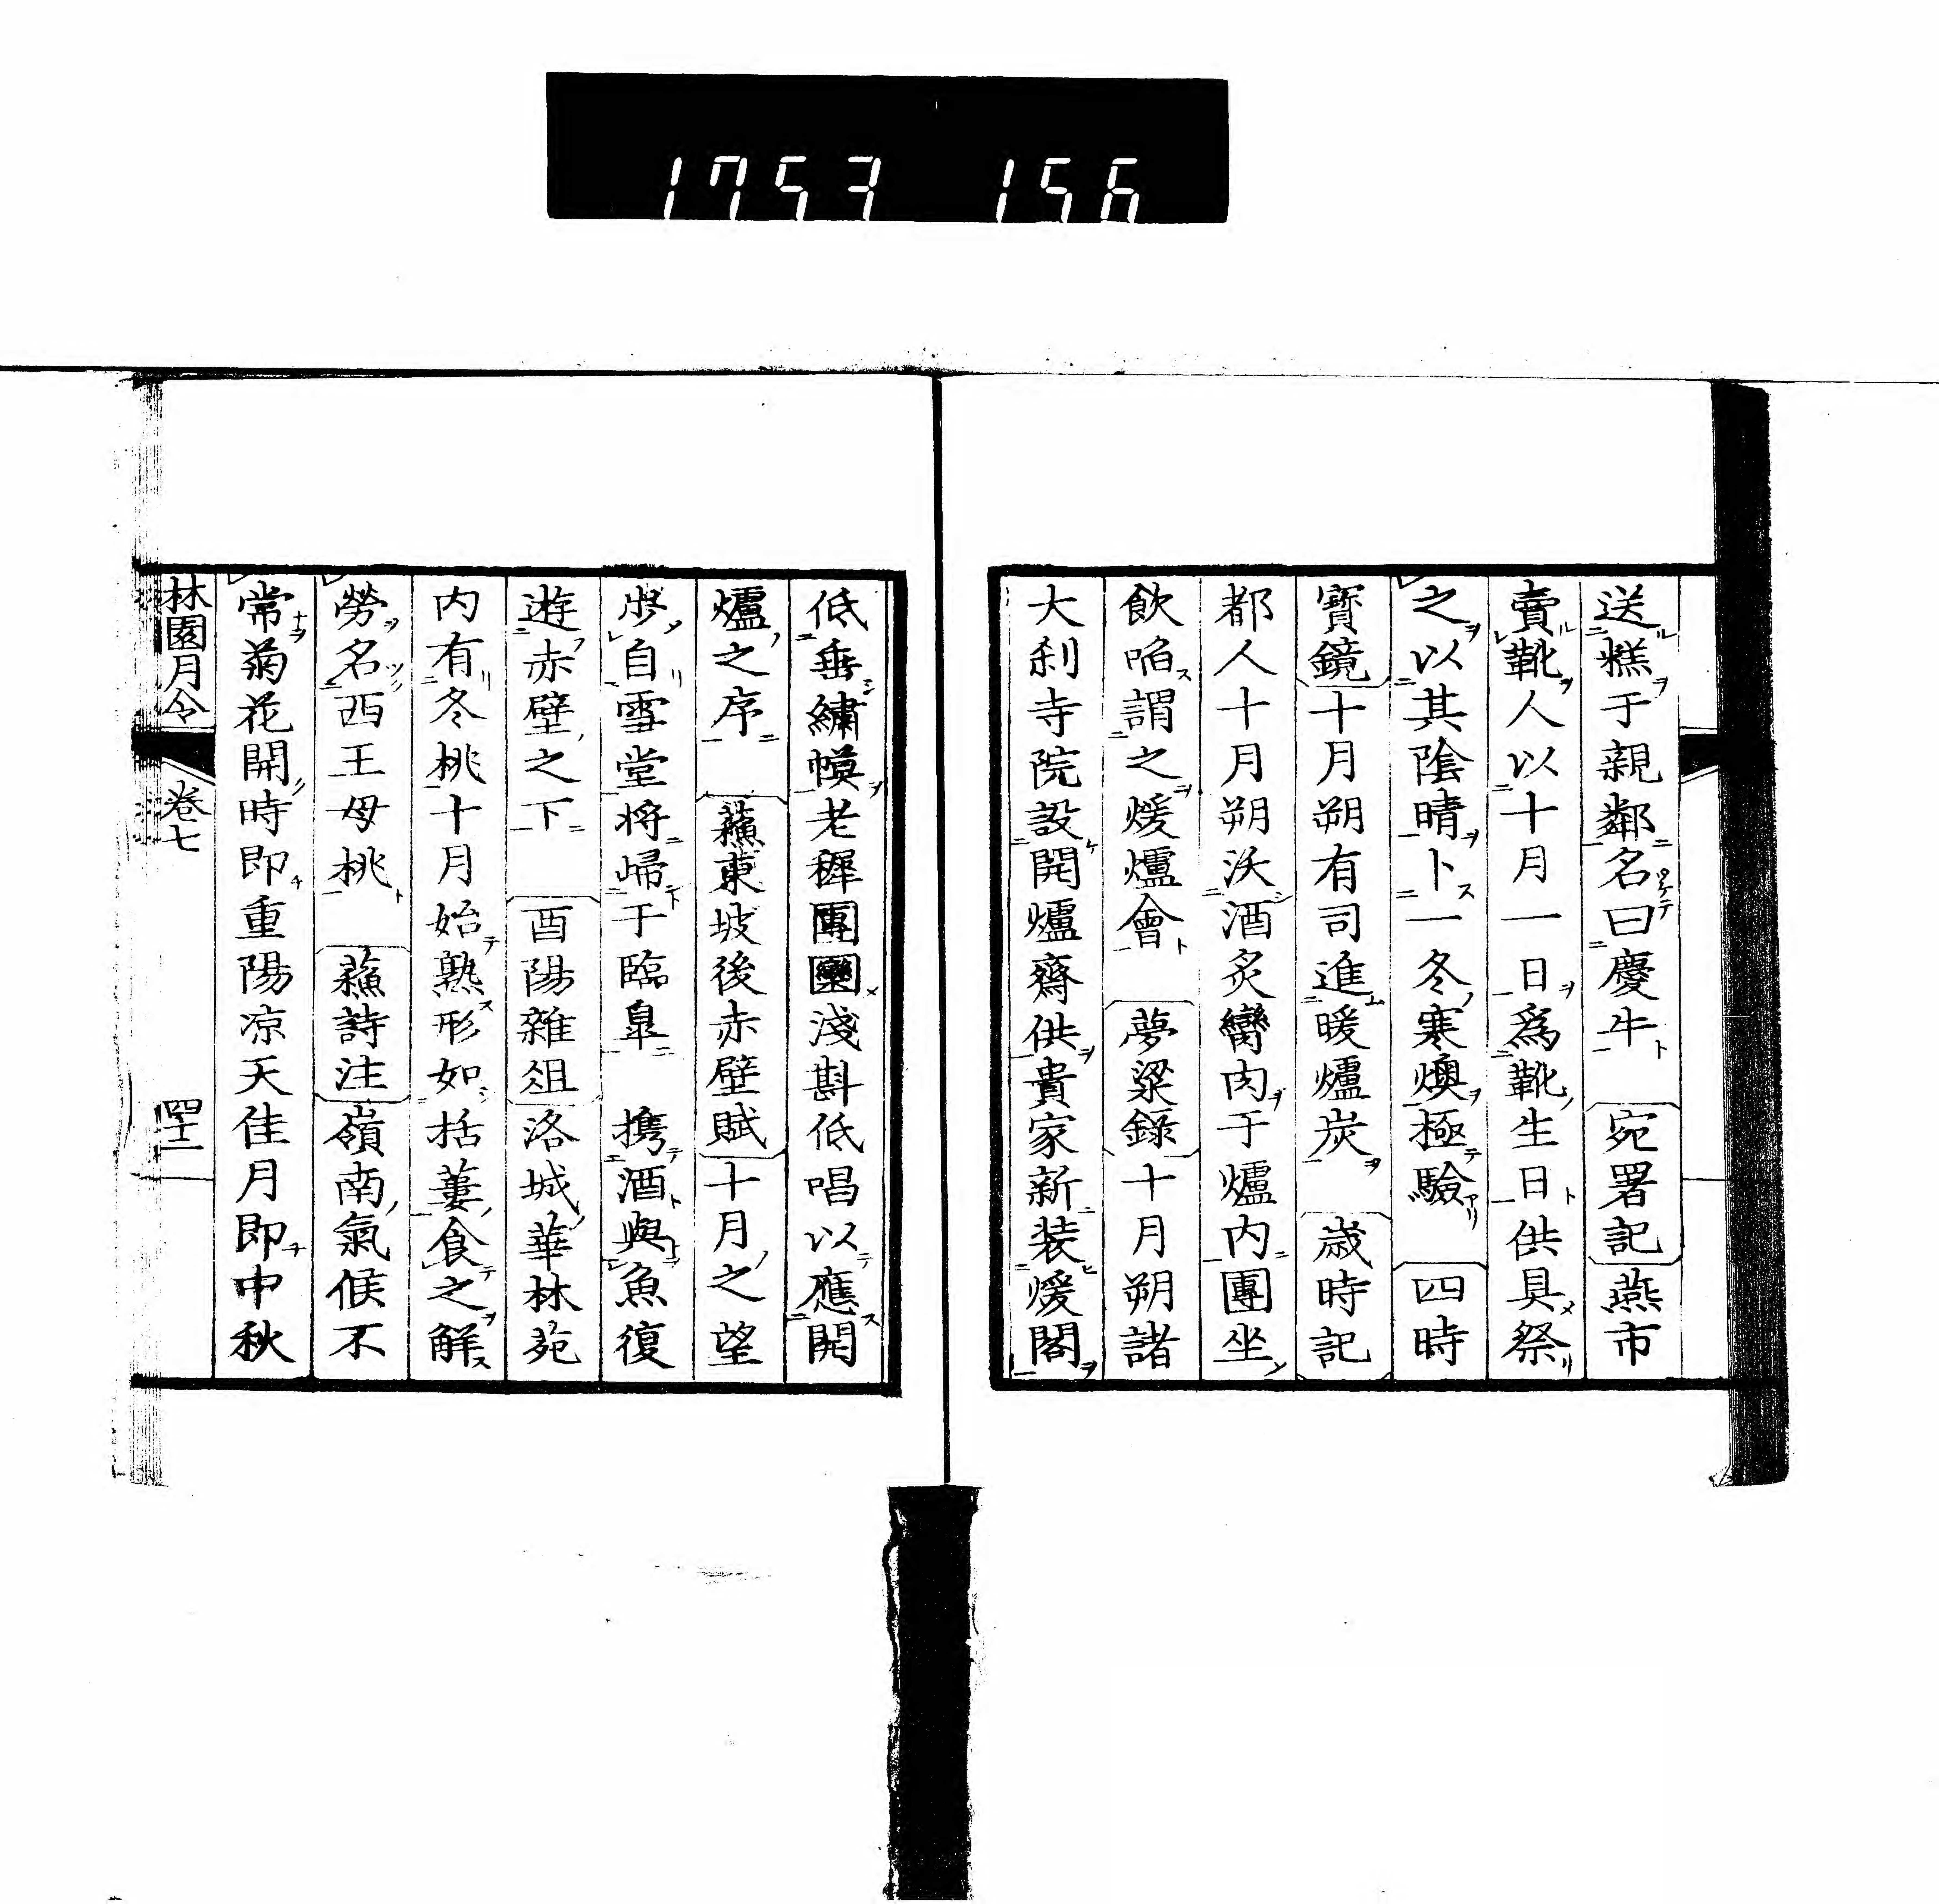 1753 156
送糕于親鄰名曰慶牛宛署記燕市
賣靴人以十月一日爲靴生日供具祭
之以其陰晴卜一冬寒燠極驗四時
寶鏡十月朔有司進暖爐炭歲時記
都人十月朔沃酒炙臠肉于爐内團坐
飲啗謂之煖爐會夢粱錄十月朔諸
大刹寺院設開爐齋供貴家新装煖閣
低垂繡幙老穉團圞淺斟低唱以應開
爐之序蘇東坡後赤壁賦十月之望
步自雪堂將歸于臨皐携酒與魚復
遊赤壁之下酉陽雜俎洛城華林苑
内有冬桃十月始熟形如括蔞食之解
勞名西王母桃蘇詩注嶺南氣候不
常菊花開時即重陽凉天佳月即中秋
林園月令 卷七 四十二